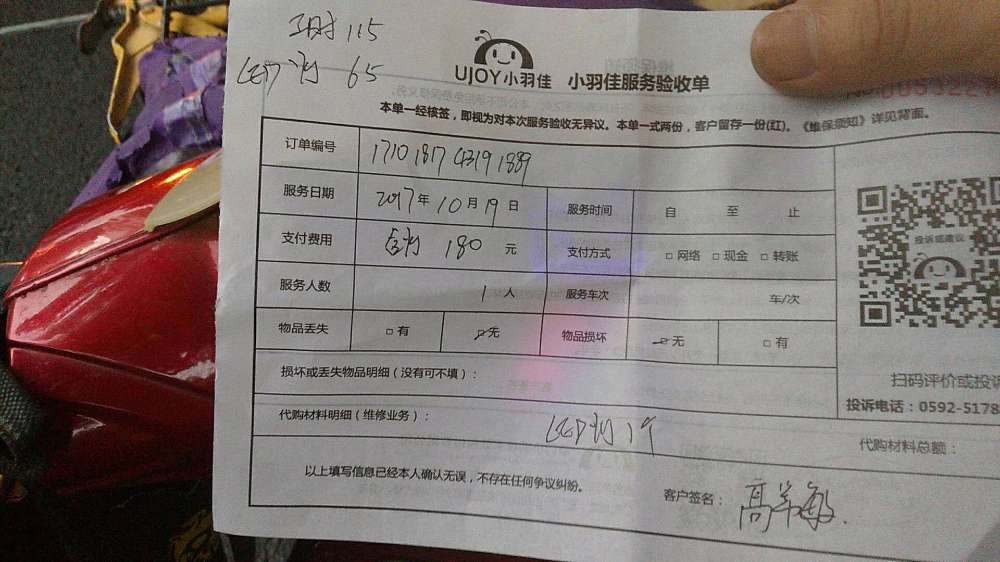 工时 115
LED灯 65
UJOY 小羽佳 小羽佳服务验收单
本单一经核签，即视为对本次服务验收无异议。本单一式两份，客户留存一份(红)。《维保须知》详见背面。
订单编号 1710 1817 4319 1889
服务日期 2017年10月19日 服务时间 自 至 止
支付费用 180 元 支付方式 □网络 □现金 □转账
服务人数 1人 服务车次 车/次
物品丢失 □有 ☑无 物品损坏 ☑无 □有
投诉或建议
扫码评价或投诉
损坏或丢失物品明细（没有可不填）：
投诉电话：0592-5178
代购材料明细（维修业务）： LED灯 1个
代购材料总额：
以上填写信息已经本人确认无误，不存在任何争议纠纷。
客户签名：高 敏